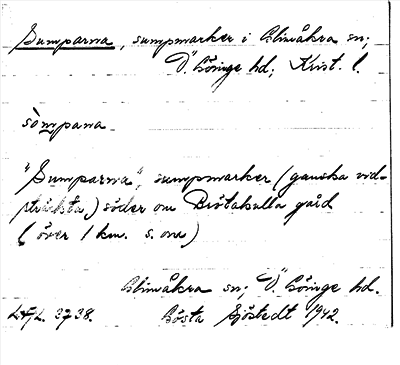 Sumparna, sumpmarker i Glimåkra sn;
Ö. Göinge hd; Krist. l.
sòmpana
"Sumparna", sumpmarker (ganska vid-
sträckta) söder om Brötakulla gård
(över 1 km. s. om)
Glimåkra sn; Ö. Göinge hd.
LAL. 3738. Gösta Sjöstedt 1942.